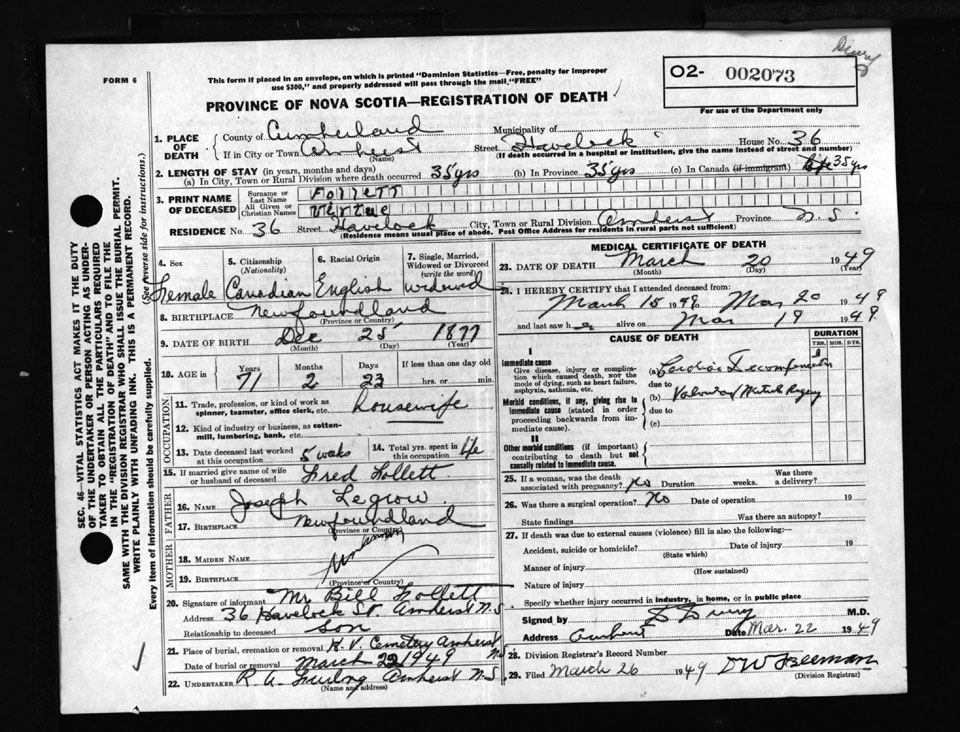 Drury
FORM 6
This form if placed in an envelope, on which is printed "Dominion Statistics—Free, penalty for improper
use $300," and properly addressed will pass through the mail "FREE"
O2- 002073
For use of the Department only
PROVINCE OF NOVA SCOTIA—REGISTRATION OF DEATH
1. PLACE OF DEATH
County of Cumberland Municipality of
If in City or Town Amherst Street Havelock House No. 36
(Name) (If death occurred in a hospital or institution, give the name instead of street and number)
2. LENGTH OF STAY (in years, months and days)
(a) In City, Town or Rural Division where death occurred 35 yrs (b) In Province 35 yrs (c) In Canada (if immigrant) life 35 yrs
3. PRINT NAME OF DECEASED
Surname or Last Name Follett
All Given or Christian Names
RESIDENCE No. 36 Street Havelock City, Town or Rural Division Amherst Province N. S.
(Residence means usual place of abode. Post Office Address for residents in rural parts not sufficient)
4. Sex 5. Citizenship (Nationality) 6. Racial Origin 7. Single, Married, Widowed or Divorced (write the word)
Female Canadian English widowed
8. BIRTHPLACE Newfoundland
(Province or Country)
9. DATE OF BIRTH Dec 25 1877
(Month) (Day) (Year)
10. AGE in Years Months Days If less than one day old
71 2 23 hrs. or min.
OCCUPATION
11. Trade, profession, or kind of work as spinner, teamster, office clerk, etc. Housewife
12. Kind of industry or business, as cotton-mill, lumbering, bank, etc.
13. Date deceased last worked at this occupation 5 weeks
14. Total yrs. spent in this occupation life
15. If married give name of wife or husband of deceased Fred Follett
FATHER
16. NAME Joseph Legrow
17. BIRTHPLACE Newfoundland
(Province or Country)
MOTHER
18. MAIDEN NAME Unknown
19. BIRTHPLACE
(Province or Country)
20. Signature of informant Mr Bill Follett
Address 36 Havelock St. Amherst N.S
Relationship to deceased Son
21. Place of burial, cremation or removal H. V. Cemetery Amherst NS
Date of burial or removal March 22 1949
22. UNDERTAKER R. A. Furlong Amherst N.S.
(Name and address)
MEDICAL CERTIFICATE OF DEATH
23. DATE OF DEATH March 20 1949
(Month) (Day) (Year)
24. I HEREBY CERTIFY that I attended deceased from:
March 15 1949 Mar 20 1949
and last saw her alive on Mar 19 1949.
CAUSE OF DEATH
DURATION
YRS. MOS. DYS.
I
Immediate cause
Give disease, injury or complication which caused death, not the mode of dying, such as heart failure, asphyxia, asthenia, etc.
(a) Cardiac Decompensation
due to
Morbid conditions, if any, giving rise to immediate cause (stated in order proceeding backwards from immediate cause).
(b) Valvular Mitral
due to
(c)
II
Other morbid conditions (if important) contributing to death but not causally related to immediate cause.
25. If a woman, was the death associated with pregnancy? No Duration weeks. Was there a delivery?
26. Was there a surgical operation? No Date of operation 19
State findings Was there an autopsy?
27. If death was due to external causes (violence) fill in also the following:—
Accident, suicide or homicide? Date of injury 19
(State which)
Manner of injury
(How sustained)
Nature of injury
Specify whether injury occurred in industry, in home, or in public place
Signed by D Drury M.D.
Address Amherst Date Mar. 22 1949
28. Division Registrar's Record Number
29. Filed March 26 1949 D W Freeman
(Division Registrar)
SEC. 46—VITAL STATISTICS ACT MAKES IT THE DUTY
OF THE UNDERTAKER OR PERSON ACTING AS UNDER-
TAKER TO OBTAIN ALL THE PARTICULARS REQUIRED
IN THE "REGISTRATION OF DEATH" AND TO FILE THE
SAME WITH THE DIVISION REGISTRAR WHO SHALL ISSUE THE BURIAL PERMIT.
WRITE PLAINLY WITH UNFADING INK. THIS IS A PERMANENT RECORD.
Every item of information should be carefully supplied. (See reverse side for instructions.)